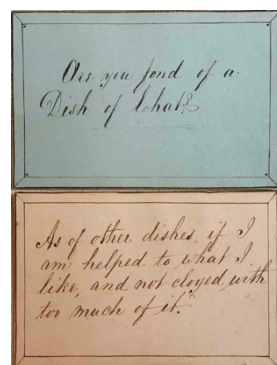 Are you fond of a
Dish of Chat?
As of other dishes, if I
am helped to what I
like, and not cloyed with
too much of it.